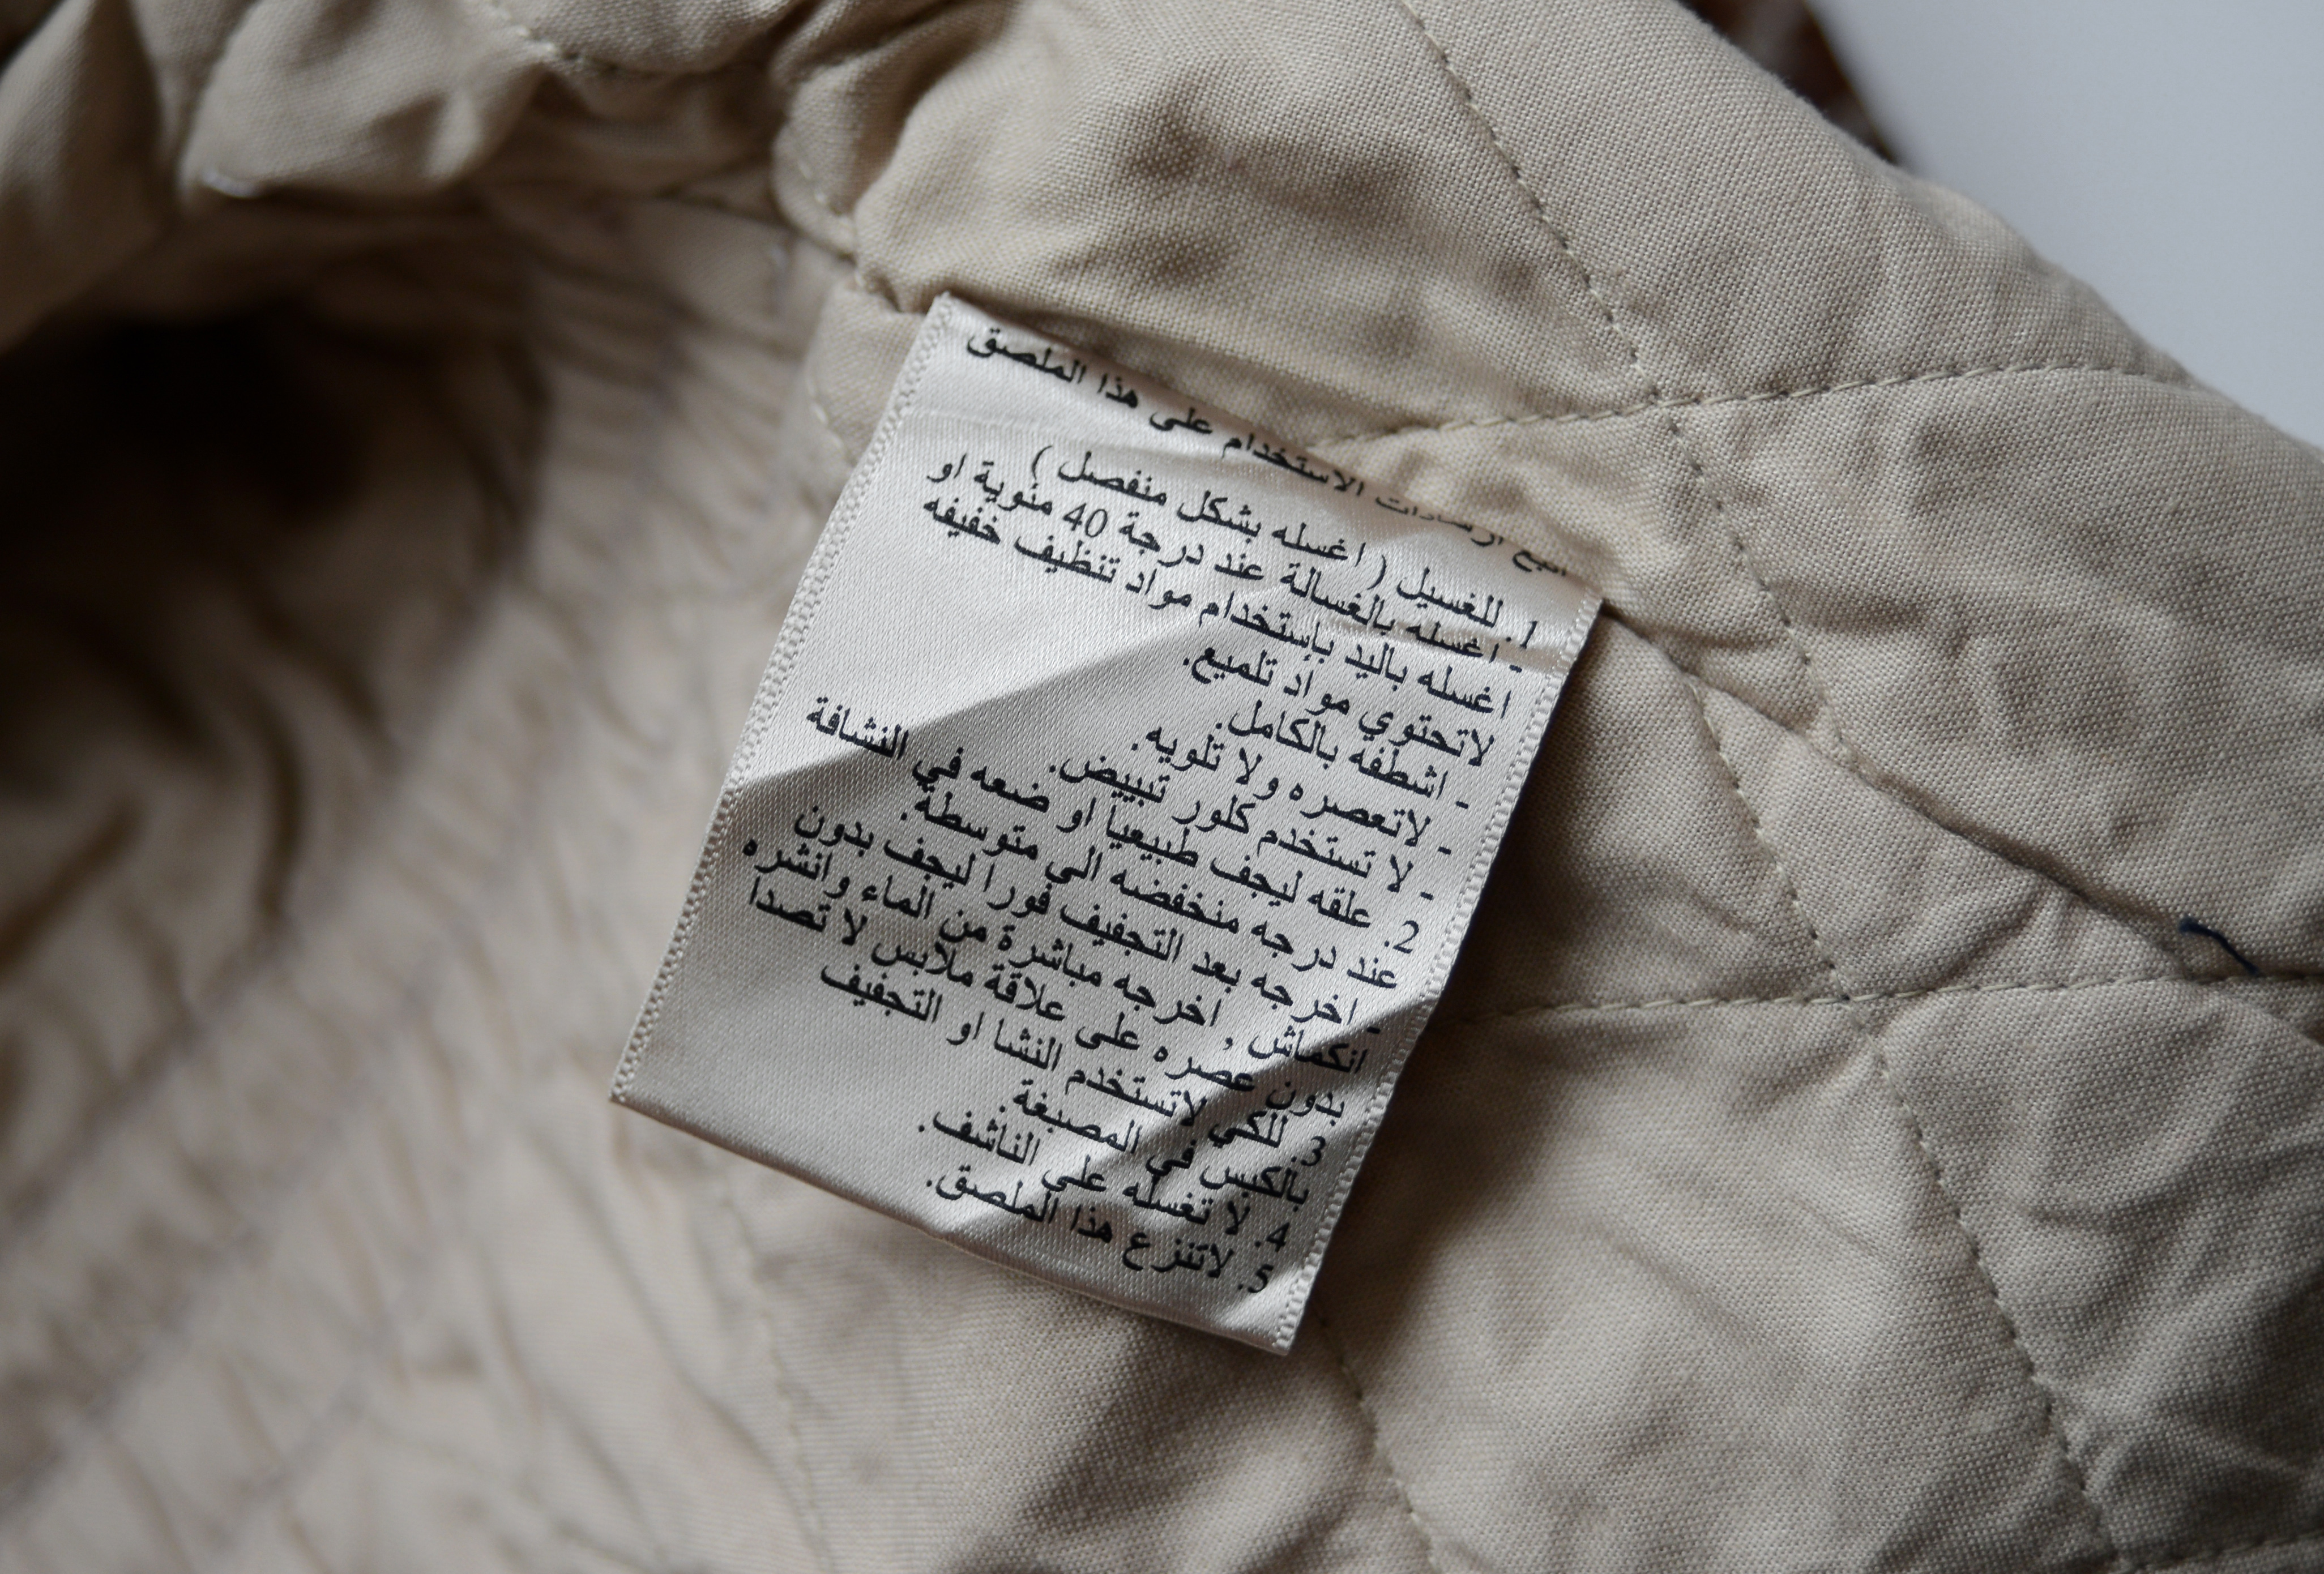 اتبع ارشادات الاستخدام على هذا الملصق
1. للغسيل ( اغسله بشكل منفصل )
- اغسله بالغسالة عند درجة 40 مئوية او
اغسله باليد بإستخدام مواد تنظيف خفيفه
لاتحتوي مواد تلميع.
- اشطفه بالكامل.
- لاتعصره ولا تلويه.
- لا تستخدم كلور تبييض.
2. علقه ليجف طبيعيا او ضعه في النشافة
عند درجه منخفضه الى متوسطة.
- اخرجه بعد التجفيف فورا ليجف بدون
انكماش , اخرجه مباشرة من الماء وانشره
بدون عصره على علاقة ملابس لا تصدا
3. للكي لاتستخدم النشا او التجفيف
بالكبس في المصبغة.
4. لا تغسله على الناشف.
5. لاتنزع هذا الملصق.